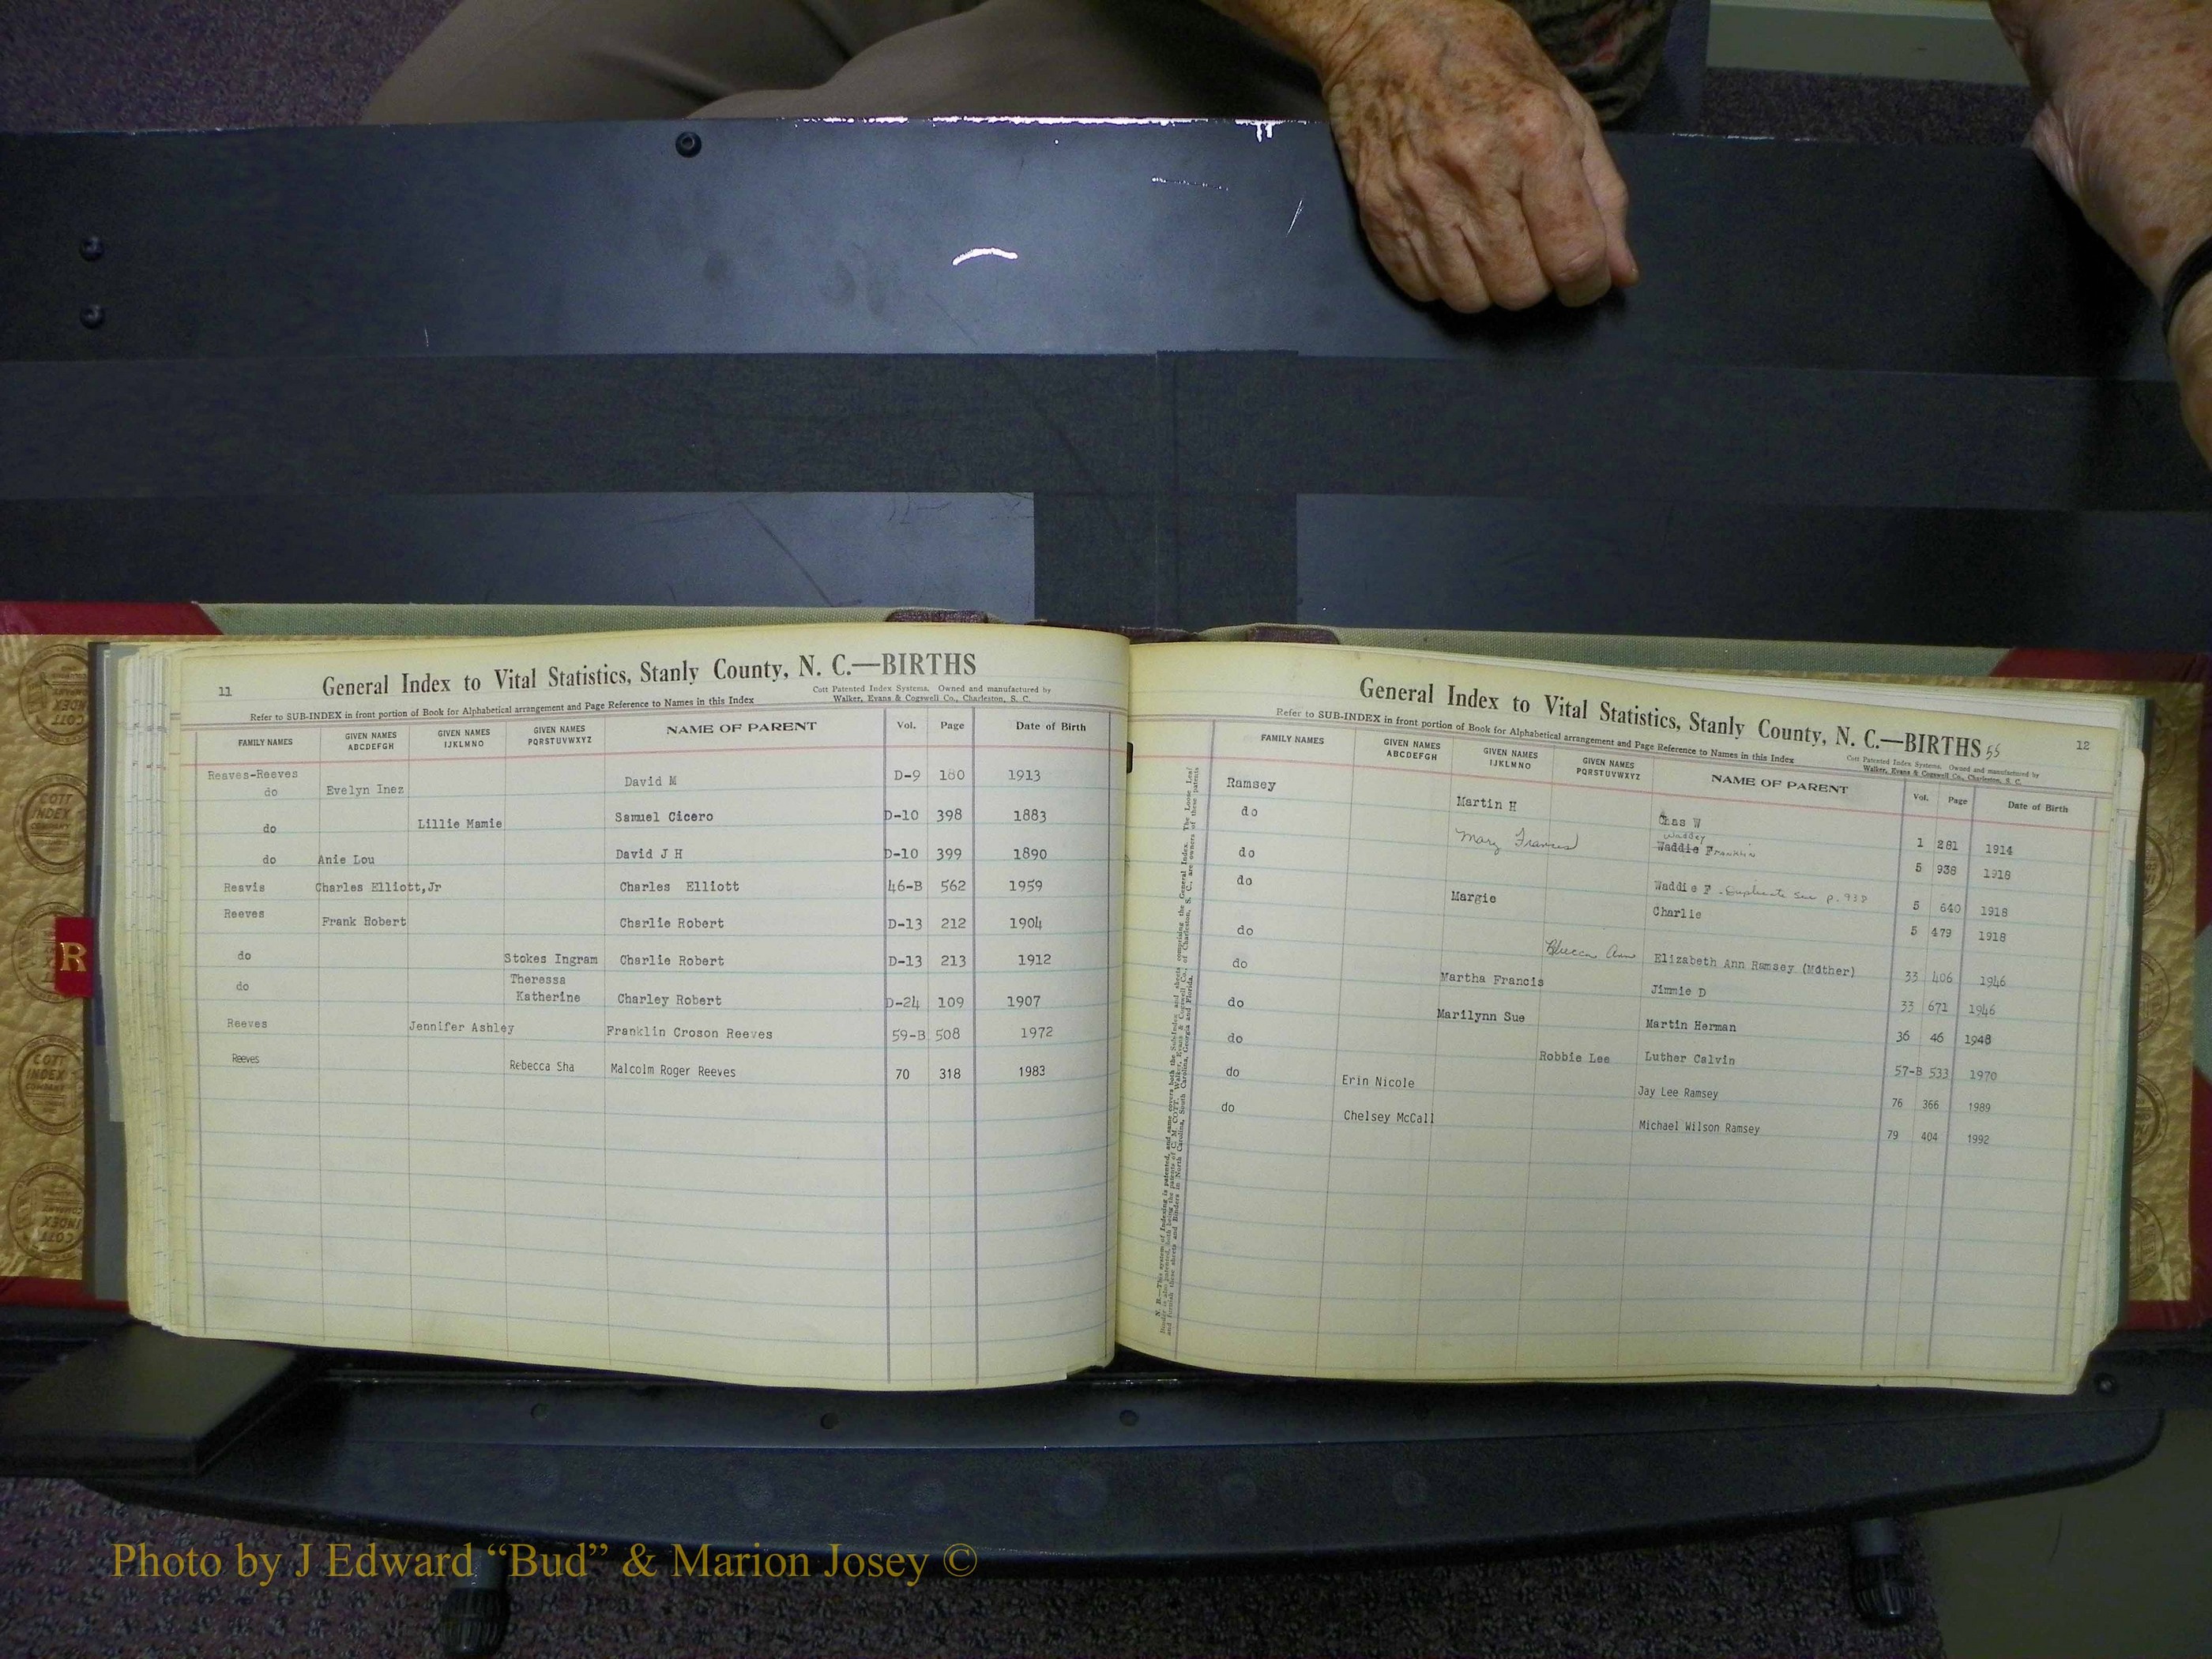 11
General Index to Vital Statistics, Stanly County, N. C.—BIRTHS
Cott Patented Index Systems, Owned and manufactured by
Walker, Evans & Cogswell Co., Charleston, S. C.
Refer to SUB-INDEX in front portion of Book for Alphabetical arrangement and Page Reference to Names in this Index
FAMILY NAMES GIVEN NAMES ABCDEFGH GIVEN NAMES IJKLMNO GIVEN NAMES PQRSTUVWXYZ NAME OF PARENT Vol. Page Date of Birth
Reaves-Reeves
do Evelyn Inez David M D-9 180 1913
do Lillie Mamie Samuel Cicero D-10 398 1883
do Anie Lou David J H D-10 399 1890
Reavis Charles Elliott,Jr Charles Elliott 46-B 562 1959
Reeves Frank Robert Charlie Robert D-13 212 1904
do Stokes Ingram Charlie Robert D-13 213 1912
do Theressa
Katherine Charley Robert D-24 109 1907
Reeves Jennifer Ashley Franklin Croson Reeves 59-B 508 1972
Reeves Rebecca Sha Malcolm Roger Reeves 70 318 1983
General Index to Vital Statistics, Stanly County, N. C.—BIRTHS 55
12
Refer to SUB-INDEX in front portion of Book for Alphabetical arrangement and Page Reference to Names in this Index
Cott Patented Index Systems, Owned and manufactured by
Walker, Evans & Cogswell Co., Charleston, S. C.
FAMILY NAMES GIVEN NAMES ABCDEFGH GIVEN NAMES IJKLMNO GIVEN NAMES PQRSTUVWXYZ NAME OF PARENT Vol. Page Date of Birth
Ramsey Martin H Chas W 1 281 1914
Waddey
do Mary Frances Waddie Franklin 5 938 1918
do Waddie F - Duplicate See p. 938 5 640 1918
do Margie Charlie 5 479 1918
do Rebecca Ann Elizabeth Ann Ramsey (Mother) 33 406 1946
do Martha Francis Jimmie D 33 671 1946
do Marilynn Sue Martin Herman 36 46 1948
do Robbie Lee Luther Calvin 57-B 533 1970
do Erin Nicole Jay Lee Ramsey 76 366 1989
do Chelsey McCall Michael Wilson Ramsey 79 404 1992
R
COTT
INDEX
COMPANY
Photo by J Edward “Bud” & Marion Josey ©